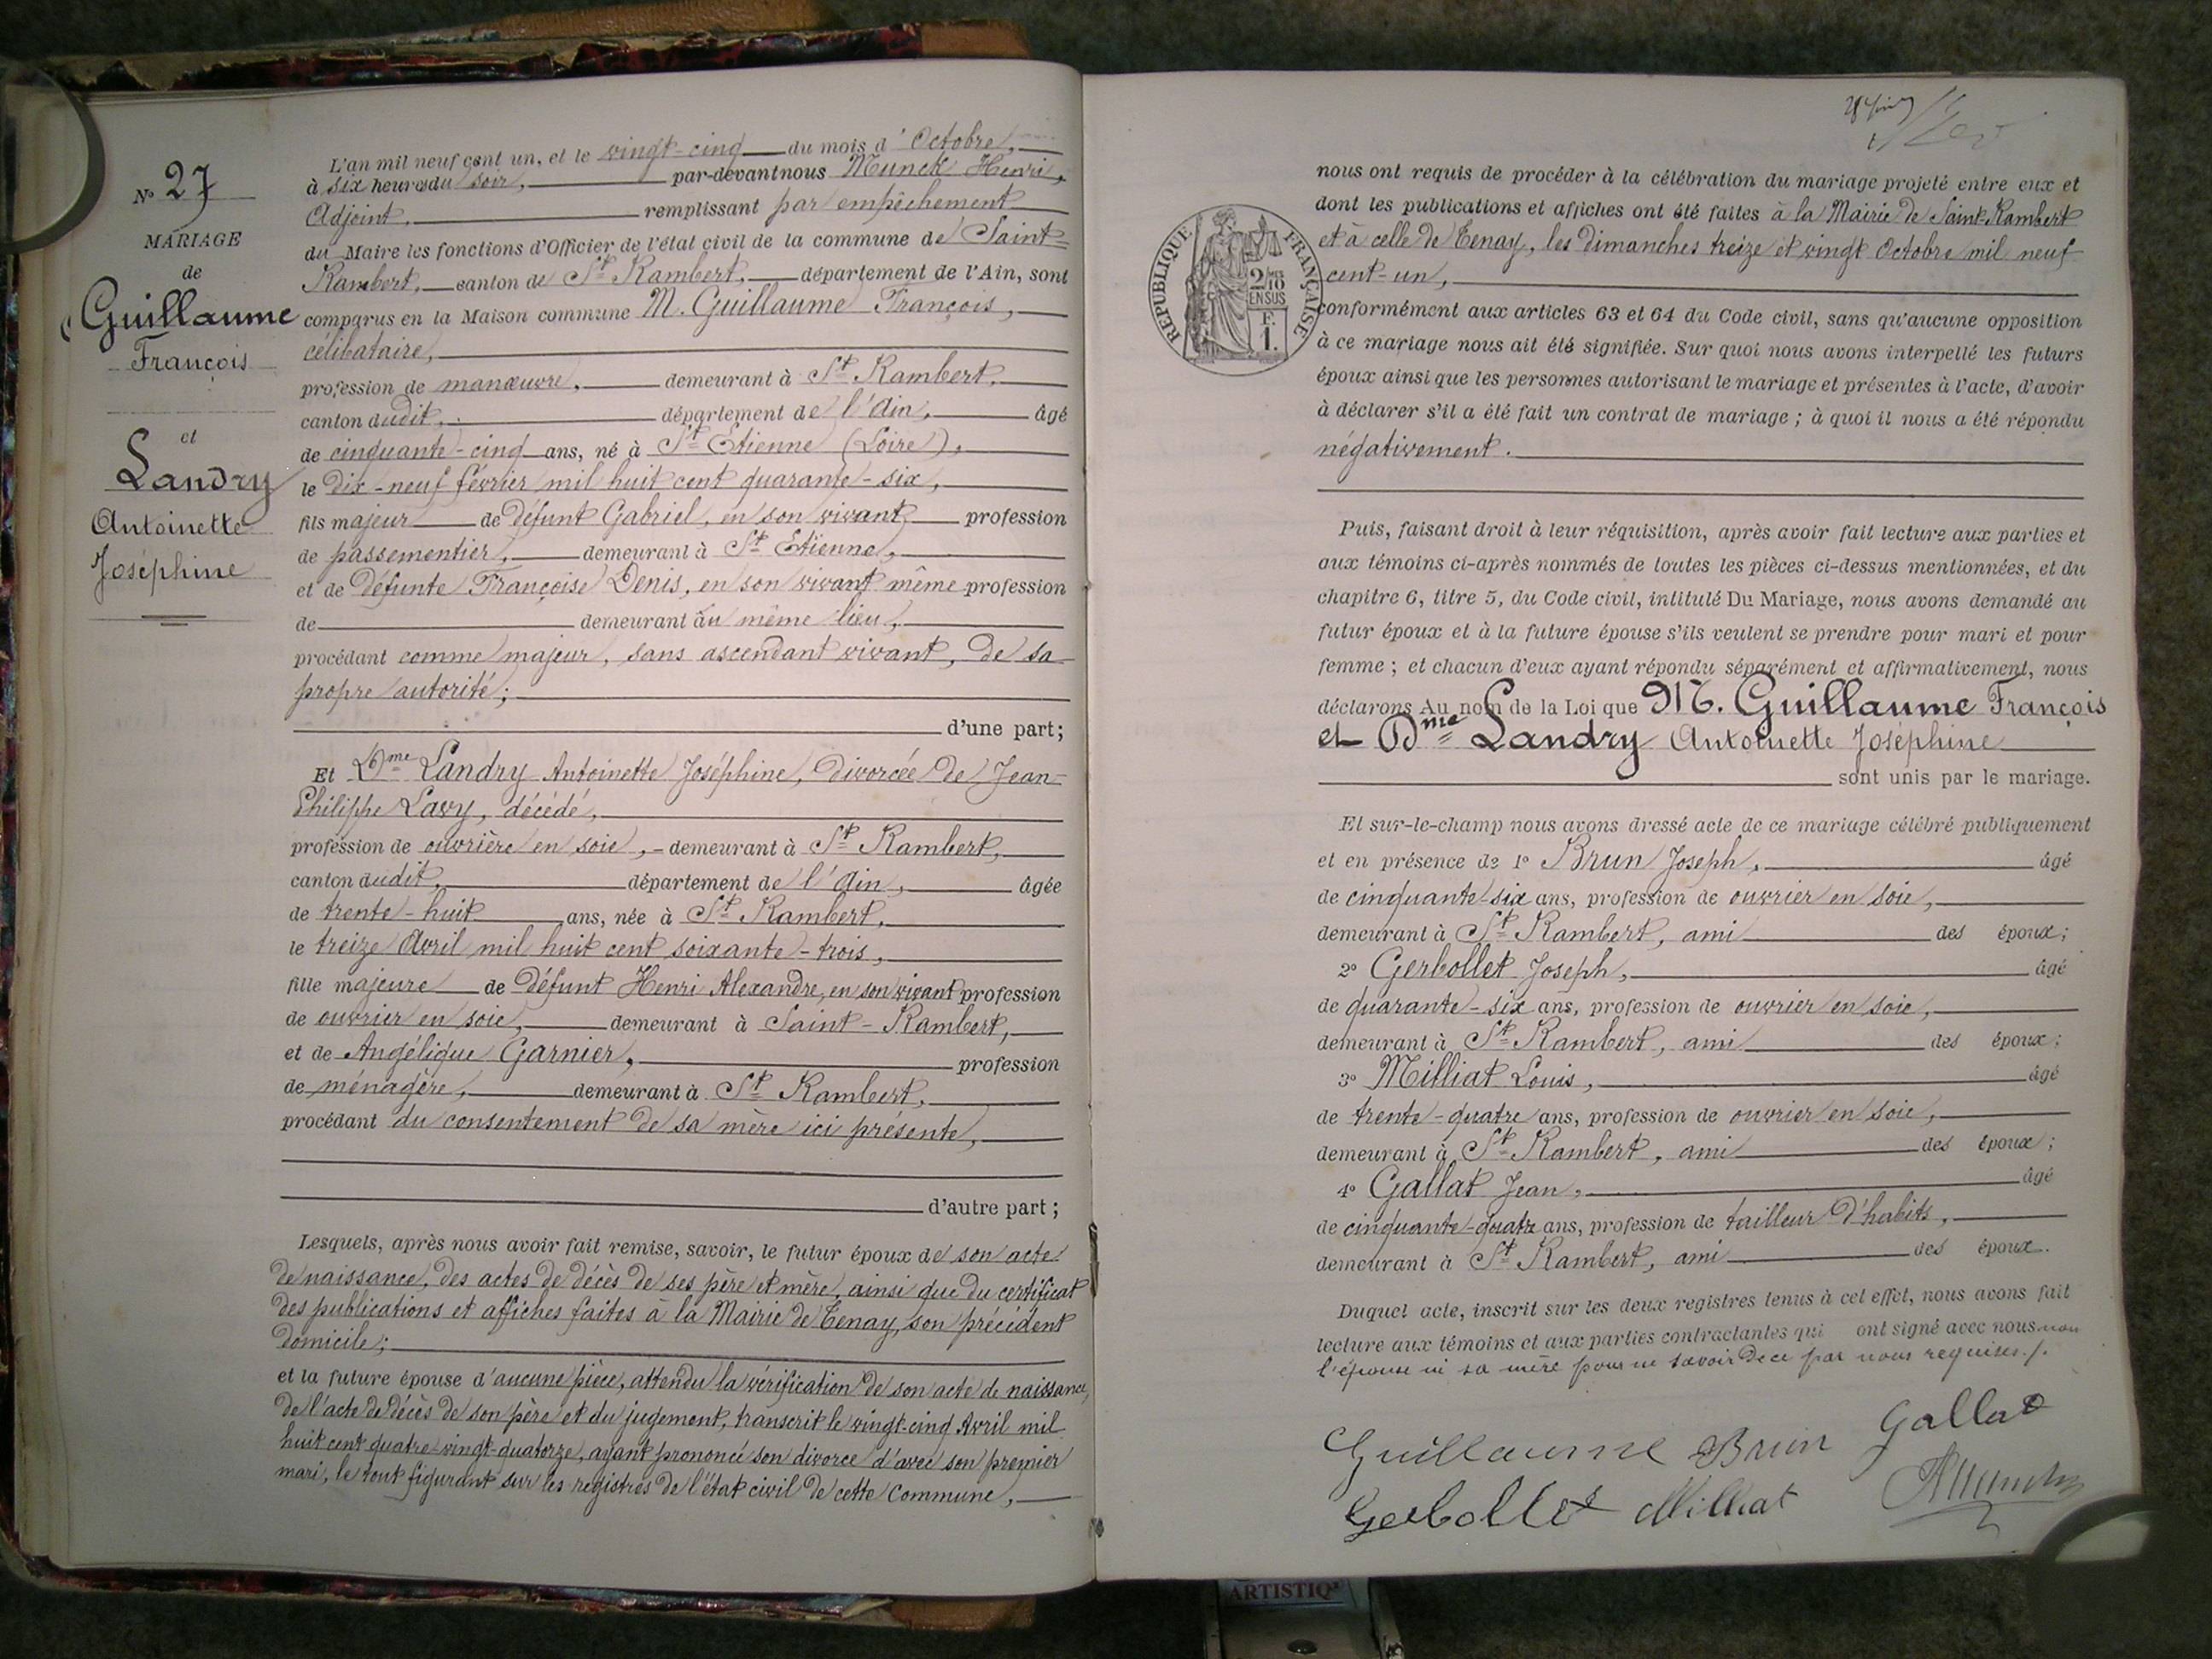 N° 27
MARIAGE
de
Guillaume
François
et
Landry
Antoinette
Joséphine
L'an mil neuf cent un, et le vingt-cinq du mois d'Octobre,
à six heures du soir, par-devant nous Munck Henri,
Adjoint, remplissant par empêchement
du Maire les fonctions d'Officier de l'état civil de la commune de Saint-
Rambert, canton de St Rambert, département de l'Ain, sont
comparus en la Maison commune M. Guillaume François,
célibataire,
profession de manœuvre, demeurant à St Rambert,
canton dudit, département de l'Ain, âgé
de cinquante-cinq ans, né à St Etienne (Loire),
le dix-neuf février mil huit cent quarante-six,
fils majeur de défunt Gabriel, en son vivant profession
de passementier, demeurant à St Etienne,
et de défunte Françoise Denis, en son vivant même profession
de demeurant au même lieu,
procédant comme majeur, sans ascendant vivant, de sa
propre autorité;
d'une part;
Et Dme Landry Antoinette Joséphine, divorcée de Jean-
Philippe Lavy, décédé,
profession de ouvrière en soie, demeurant à St Rambert,
canton dudit, département de l'Ain, âgée
de trente-huit ans, née à St Rambert,
le treize Avril mil huit cent soixante-trois,
fille majeure de défunt Henri Alexandre, en son vivant profession
de ouvrier en soie, demeurant à Saint-Rambert,
et de Angélique Garnier, profession
de ménagère, demeurant à St Rambert,
procédant du consentement de sa mère ici présente,
d'autre part;
Lesquels, après nous avoir fait remise, savoir, le futur époux de son acte
de naissance, des actes de décès de ses père et mère, ainsi que du certificat
des publications et affiches faites à la Mairie de Tenay, son précédent
domicile;
et la future épouse d'aucune pièce, attendu la vérification de son acte de naissance,
de l'acte de décès de son père et du jugement, transcrit le vingt-cinq Avril mil
huit cent quatre-vingt-quatorze, ayant prononcé son divorce d'avec son premier
mari, le tout figurant sur les registres de l'état civil de cette Commune,
nous ont requis de procéder à la célébration du mariage projeté entre eux et
dont les publications et affiches ont été faites à la Mairie de Saint-Rambert
et à celle de Tenay, les dimanches treize et vingt Octobre mil neuf
cent-un,
RÉPUBLIQUE FRANÇAISE
2/10
EN SUS
F.
1.
conformément aux articles 63 et 64 du Code civil, sans qu'aucune opposition
à ce mariage nous ait été signifiée. Sur quoi nous avons interpellé les futurs
époux ainsi que les personnes autorisant le mariage et présentes à l'acte, d'avoir
à déclarer s'il a été fait un contrat de mariage; à quoi il nous a été répondu
négativement.
Puis, faisant droit à leur réquisition, après avoir fait lecture aux parties et
aux témoins ci-après nommés de toutes les pièces ci-dessus mentionnées, et du
chapitre 6, titre 5, du Code civil, intitulé Du Mariage, nous avons demandé au
futur époux et à la future épouse s'ils veulent se prendre pour mari et pour
femme; et chacun d'eux ayant répondu séparément et affirmativement, nous
déclarons Au nom de la Loi que M. Guillaume François
et Dme Landry Antoinette Joséphine
sont unis par le mariage.
Et sur-le-champ nous avons dressé acte de ce mariage célébré publiquement
et en présence de 1° Brun Joseph, âgé
de cinquante-six ans, profession de ouvrier en soie,
demeurant à St Rambert, ami des époux;
2° Gerbollet Joseph, âgé
de quarante-six ans, profession de ouvrier en soie,
demeurant à St Rambert, ami des époux;
3° Milliat Louis, âgé
de trente-quatre ans, profession de ouvrier en soie,
demeurant à St Rambert, ami des époux;
4° Gallat Jean, âgé
de cinquante-quatre ans, profession de tailleur d'habits,
demeurant à St Rambert, ami des époux.
Duquel acte, inscrit sur les deux registres tenus à cet effet, nous avons fait
lecture aux témoins et aux parties contractantes qui ont signé avec nous non
l'épouse ni sa mère pour ne savoir de ce par nous requises./.
Guillaume Brun Gallat
Gerbollet Milliat
ARTISTIQ